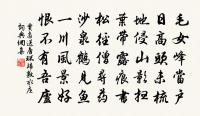 毛女峰當戶
日高頭未梳
地侵山影掃
葉帶露痕書
松徑僧尋藥
沙泉鶴見魚
一川風景好
恨不有吾廬
賈島送唐環歸敷水莊
詞典網集